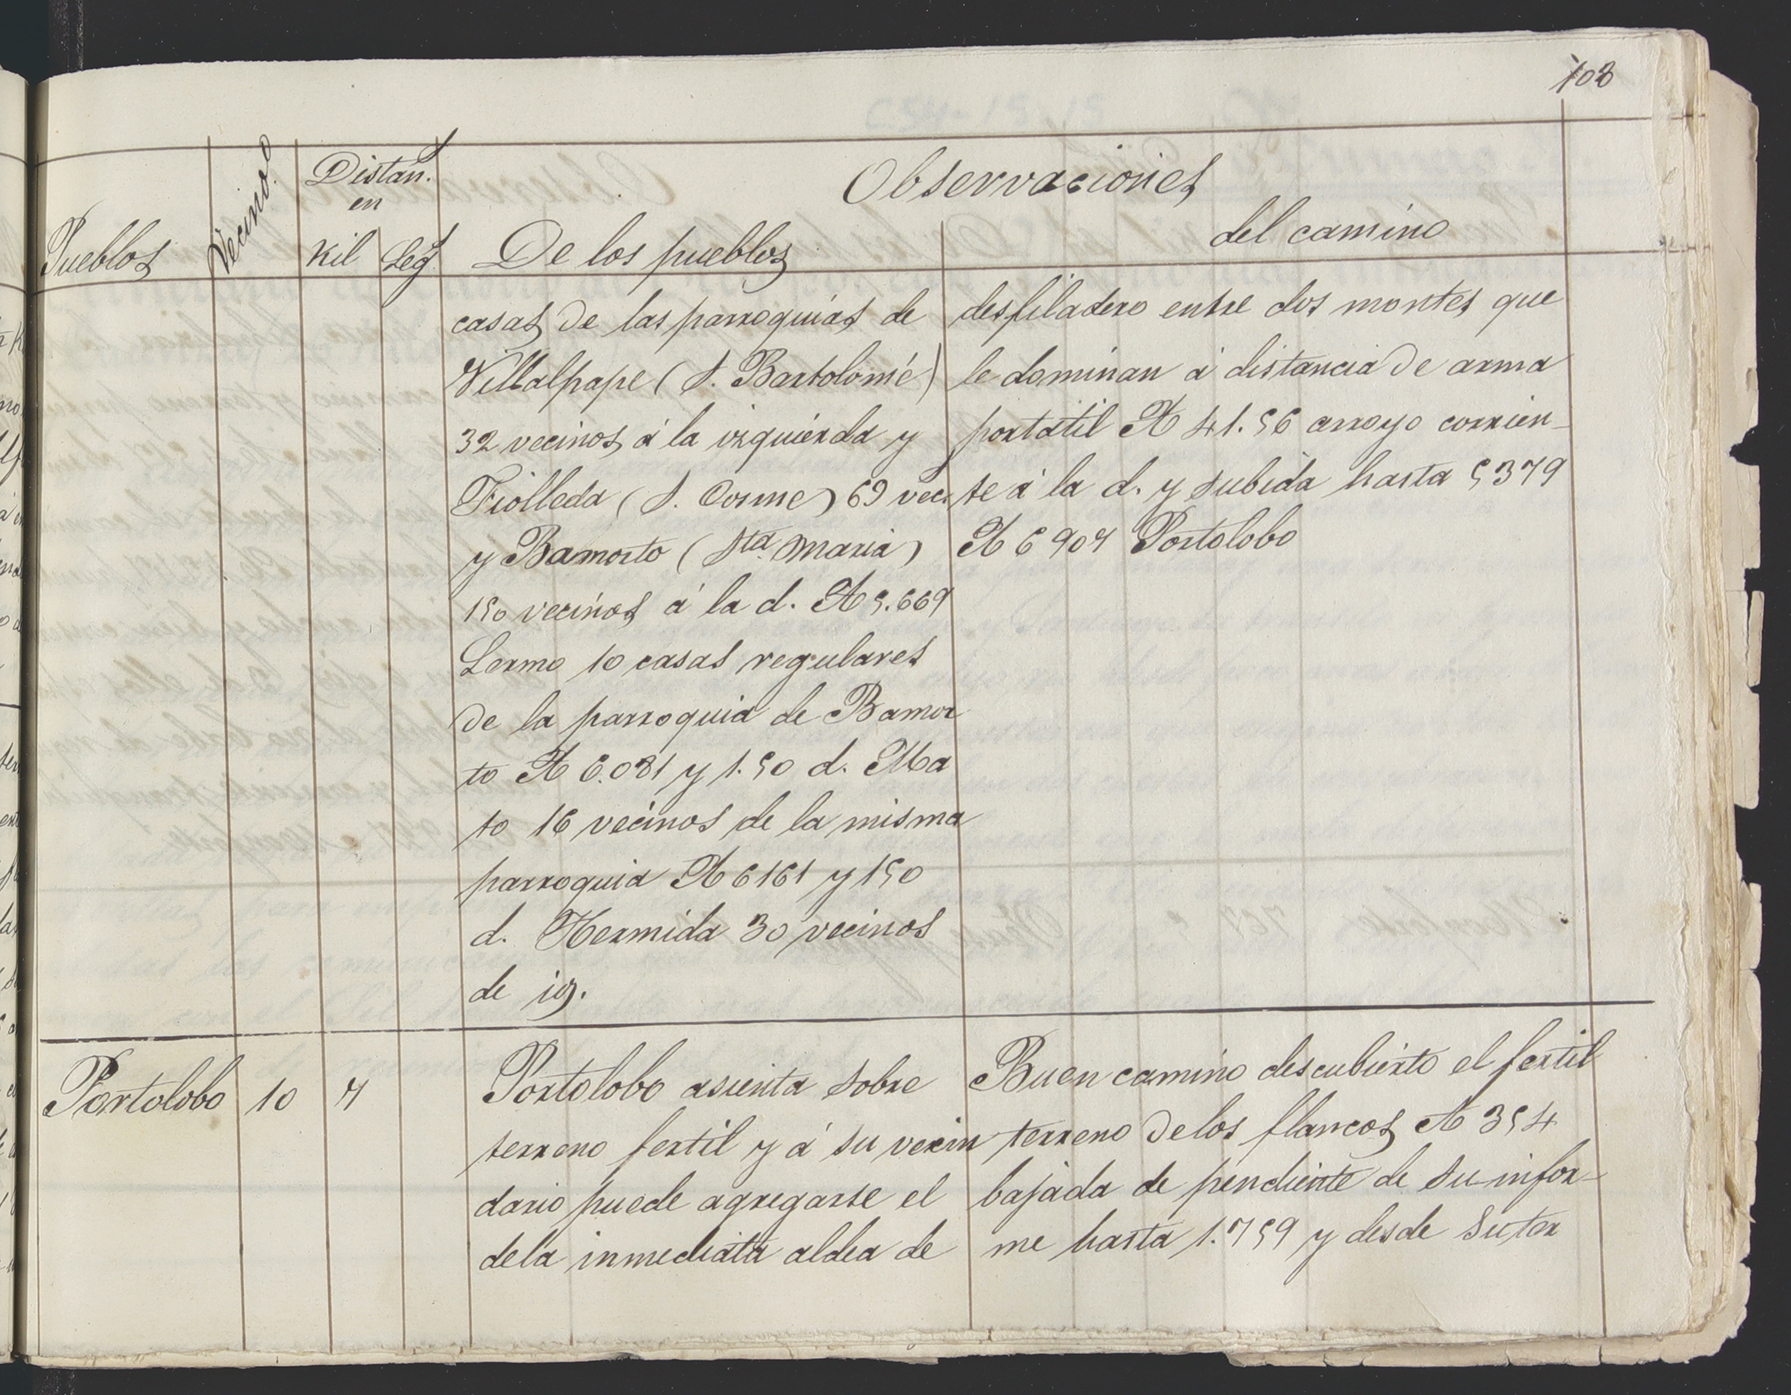 108
Pueblos
Vecinos
Distan.
en
Kil
Leg
Observaciones
De los pueblos
del camino
casas de las parroquias de
Villalpape (S. Bartolomé)
32 vecinos á la izquierda y
Fiolleda (S. Cosme) 69 veci.
y Bamorto (Sta. Maria)
150 vecinos á la d. A 5.669
Lermo 10 casas regulares
de la parroquia de Bamor
to A 6.081 y 1.50 d. Ma
to 16 vecinos de la misma
parroquia A 6161 y 150
d. Hermida 30 vecinos
de id.
desfiladero entre dos montes que
le dominan á distancia de arma
portátil A 41.56 arroyo corrien-
te á la d. y subida hasta 5379
A 6 904 Portolobo
Portolobo 10 7
Portolobo asienta sobre
terreno fertil y á su vecin
dario puede agregarse el
de la inmediata aldea de
Buen camino descubierto el fertil
terreno de los flancos A 354
bajada de pendiente de su infor-
me hasta 1.759 y desde su ter